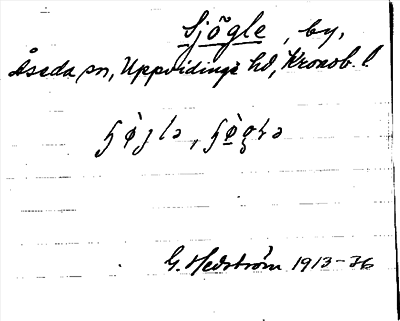 Sjögle, by,
Åseda sn, Uppvidinge hd, Kronob. l.
G. Hedström 1913-36